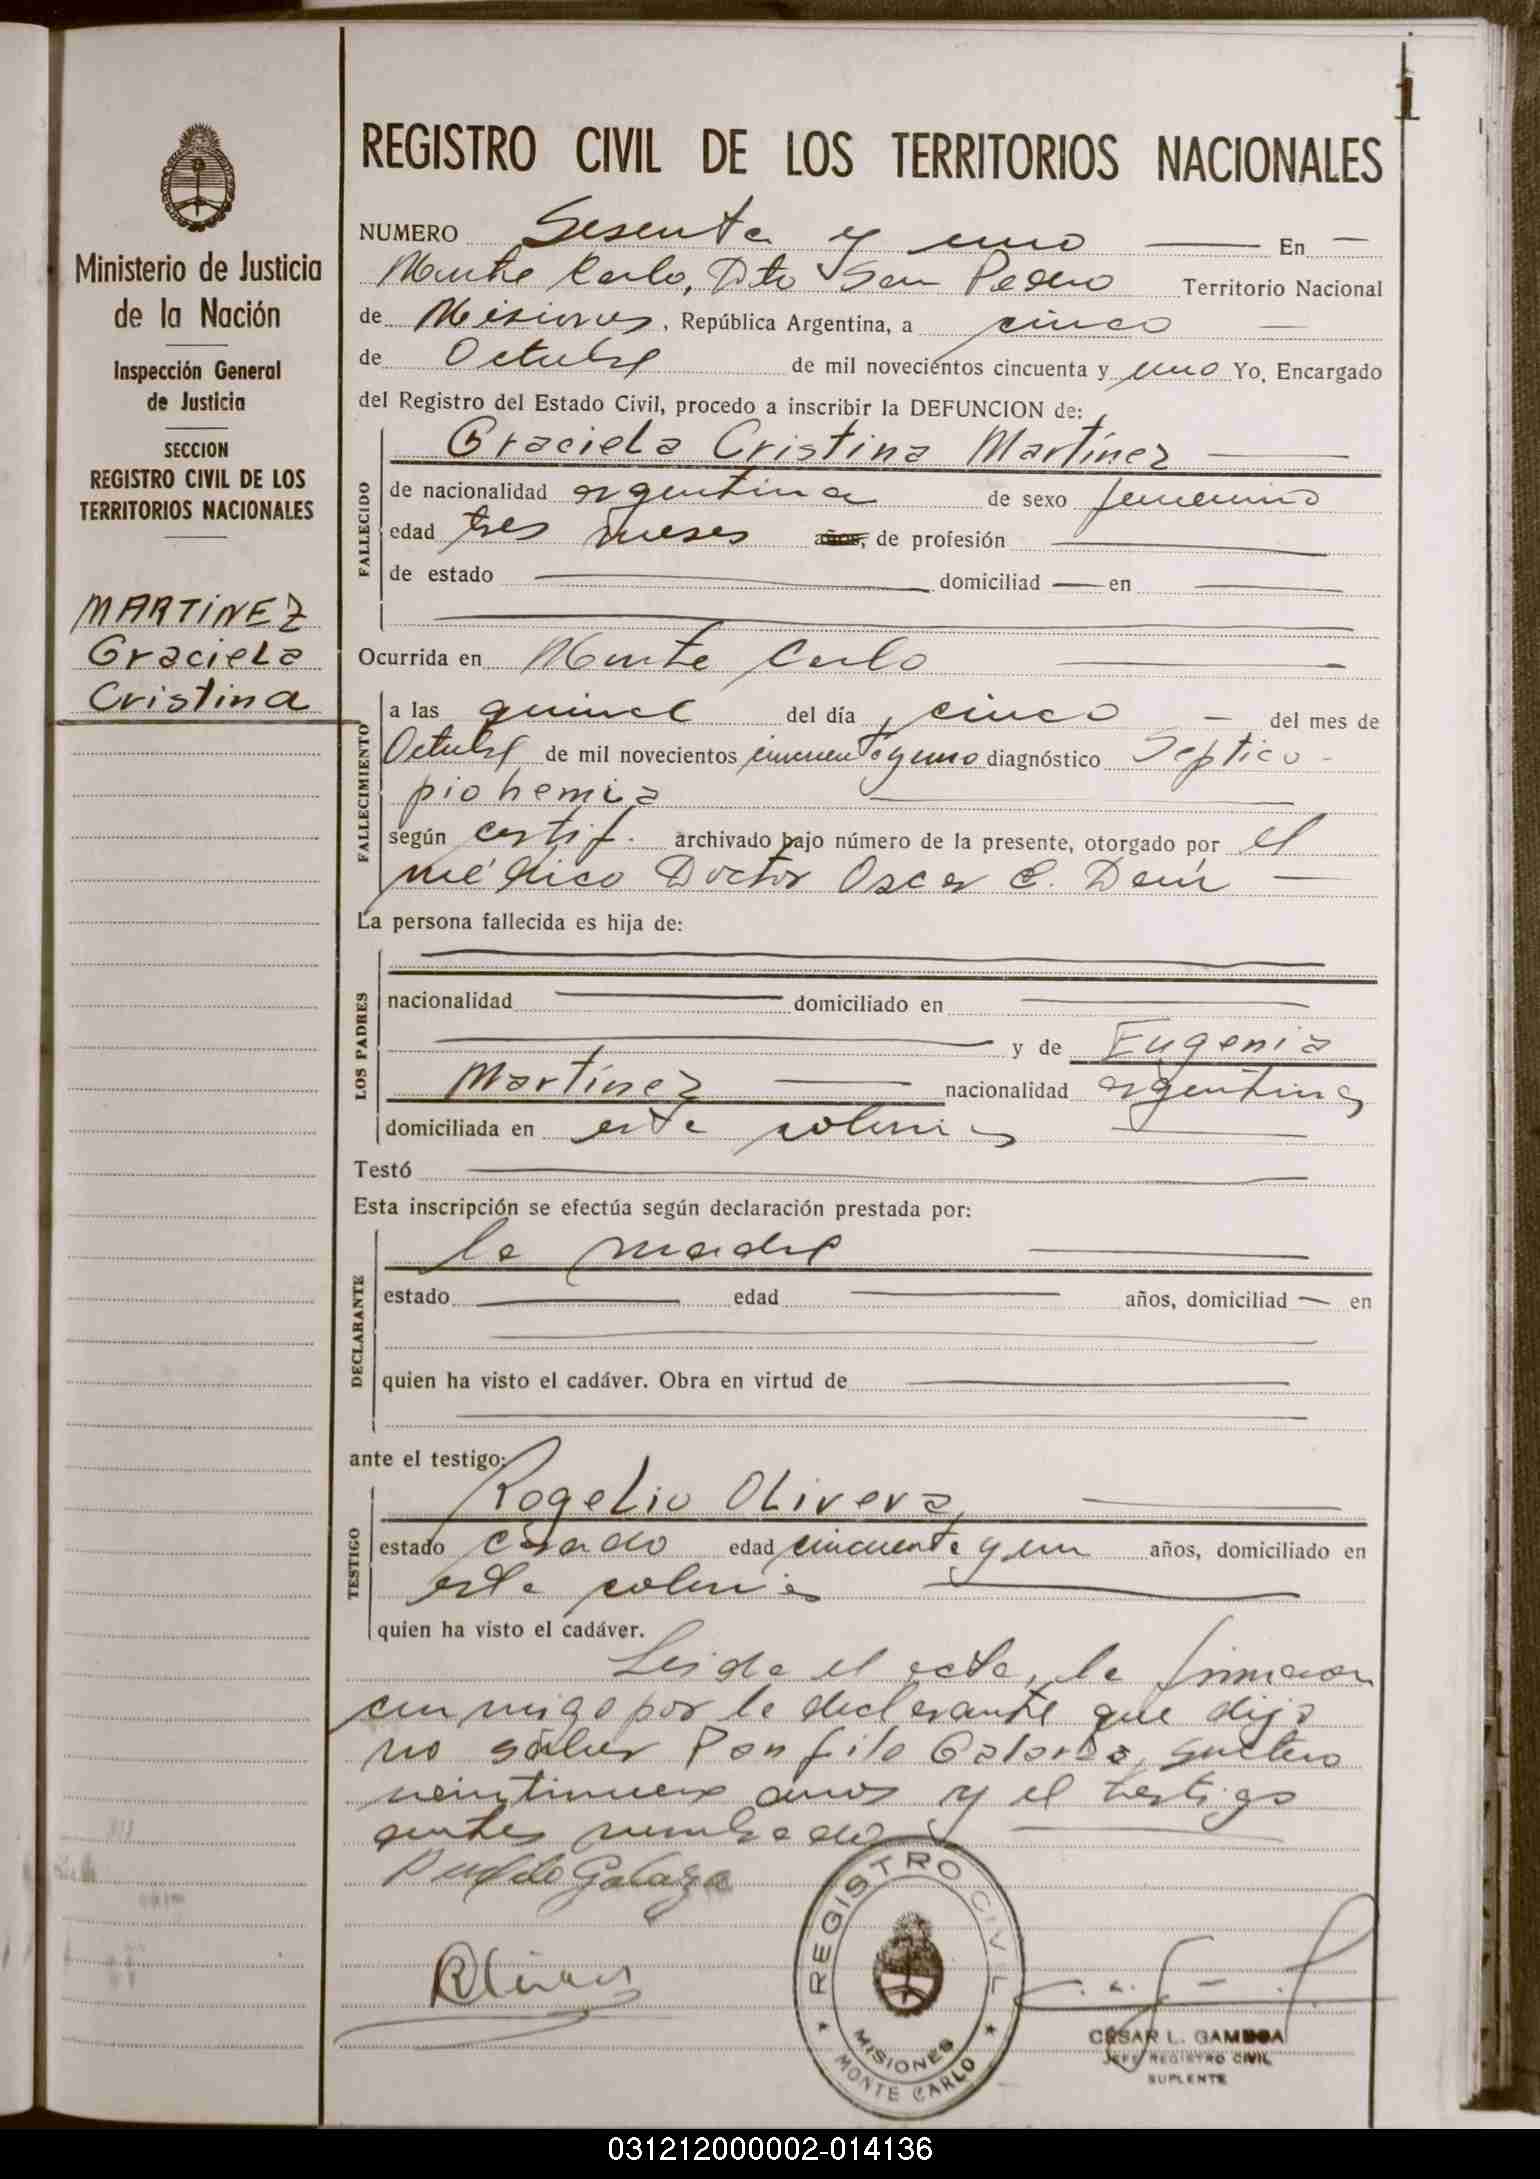 1
REGISTRO CIVIL DE LOS TERRITORIOS NACIONALES
Ministerio de Justicia
de la Nación
Inspección General
de Justicia
SECCION
REGISTRO CIVIL DE LOS
TERRITORIOS NACIONALES
MARTINEZ
Graciela
Cristina
NUMERO Sesenta y uno En
Monte Carlo, Dto San Pedro Territorio Nacional
de Misiones, República Argentina, a cinco
de Octubre de mil novecientos cincuenta y uno Yo, Encargado
del Registro del Estado Civil, procedo a inscribir la DEFUNCION de:
FALLECIDO
Graciela Cristina Martínez
de nacionalidad argentina de sexo femenino
edad tres meses años, de profesión
de estado domiciliad en
Ocurrida en Monte Carlo
FALLECIMIENTO
a las quince del día cinco del mes de
Octubre de mil novecientos cincuenta y uno diagnóstico Septico-
piohemia
según certif. archivado bajo número de la presente, otorgado por el
médico Doctor Oscar C.
La persona fallecida es hija de:
LOS PADRES
nacionalidad domiciliado en
y de Eugenia
Martínez nacionalidad argentina
domiciliada en esta colonia
Testó
Esta inscripción se efectúa según declaración prestada por:
DECLARANTE
la madre
estado edad años, domiciliad en
quien ha visto el cadáver. Obra en virtud de
ante el testigo:
TESTIGO
Rogelio Olivera
estado casado edad cincuenta y un años, domiciliado en
esta colonia
quien ha visto el cadáver.
Leida el acta, la firmaron
conmigo por la declarante que dijo
no saber Panfilo Galarza, soltero
veintinueve años y el testigo
antes nombrado
Galarza
ROlivera
REGISTRO CIVIL
MISIONES
MONTE CARLO
CESAR L. GAMBOA
JEFE REGISTRO CIVIL
SUPLENTE
031212000002-014136